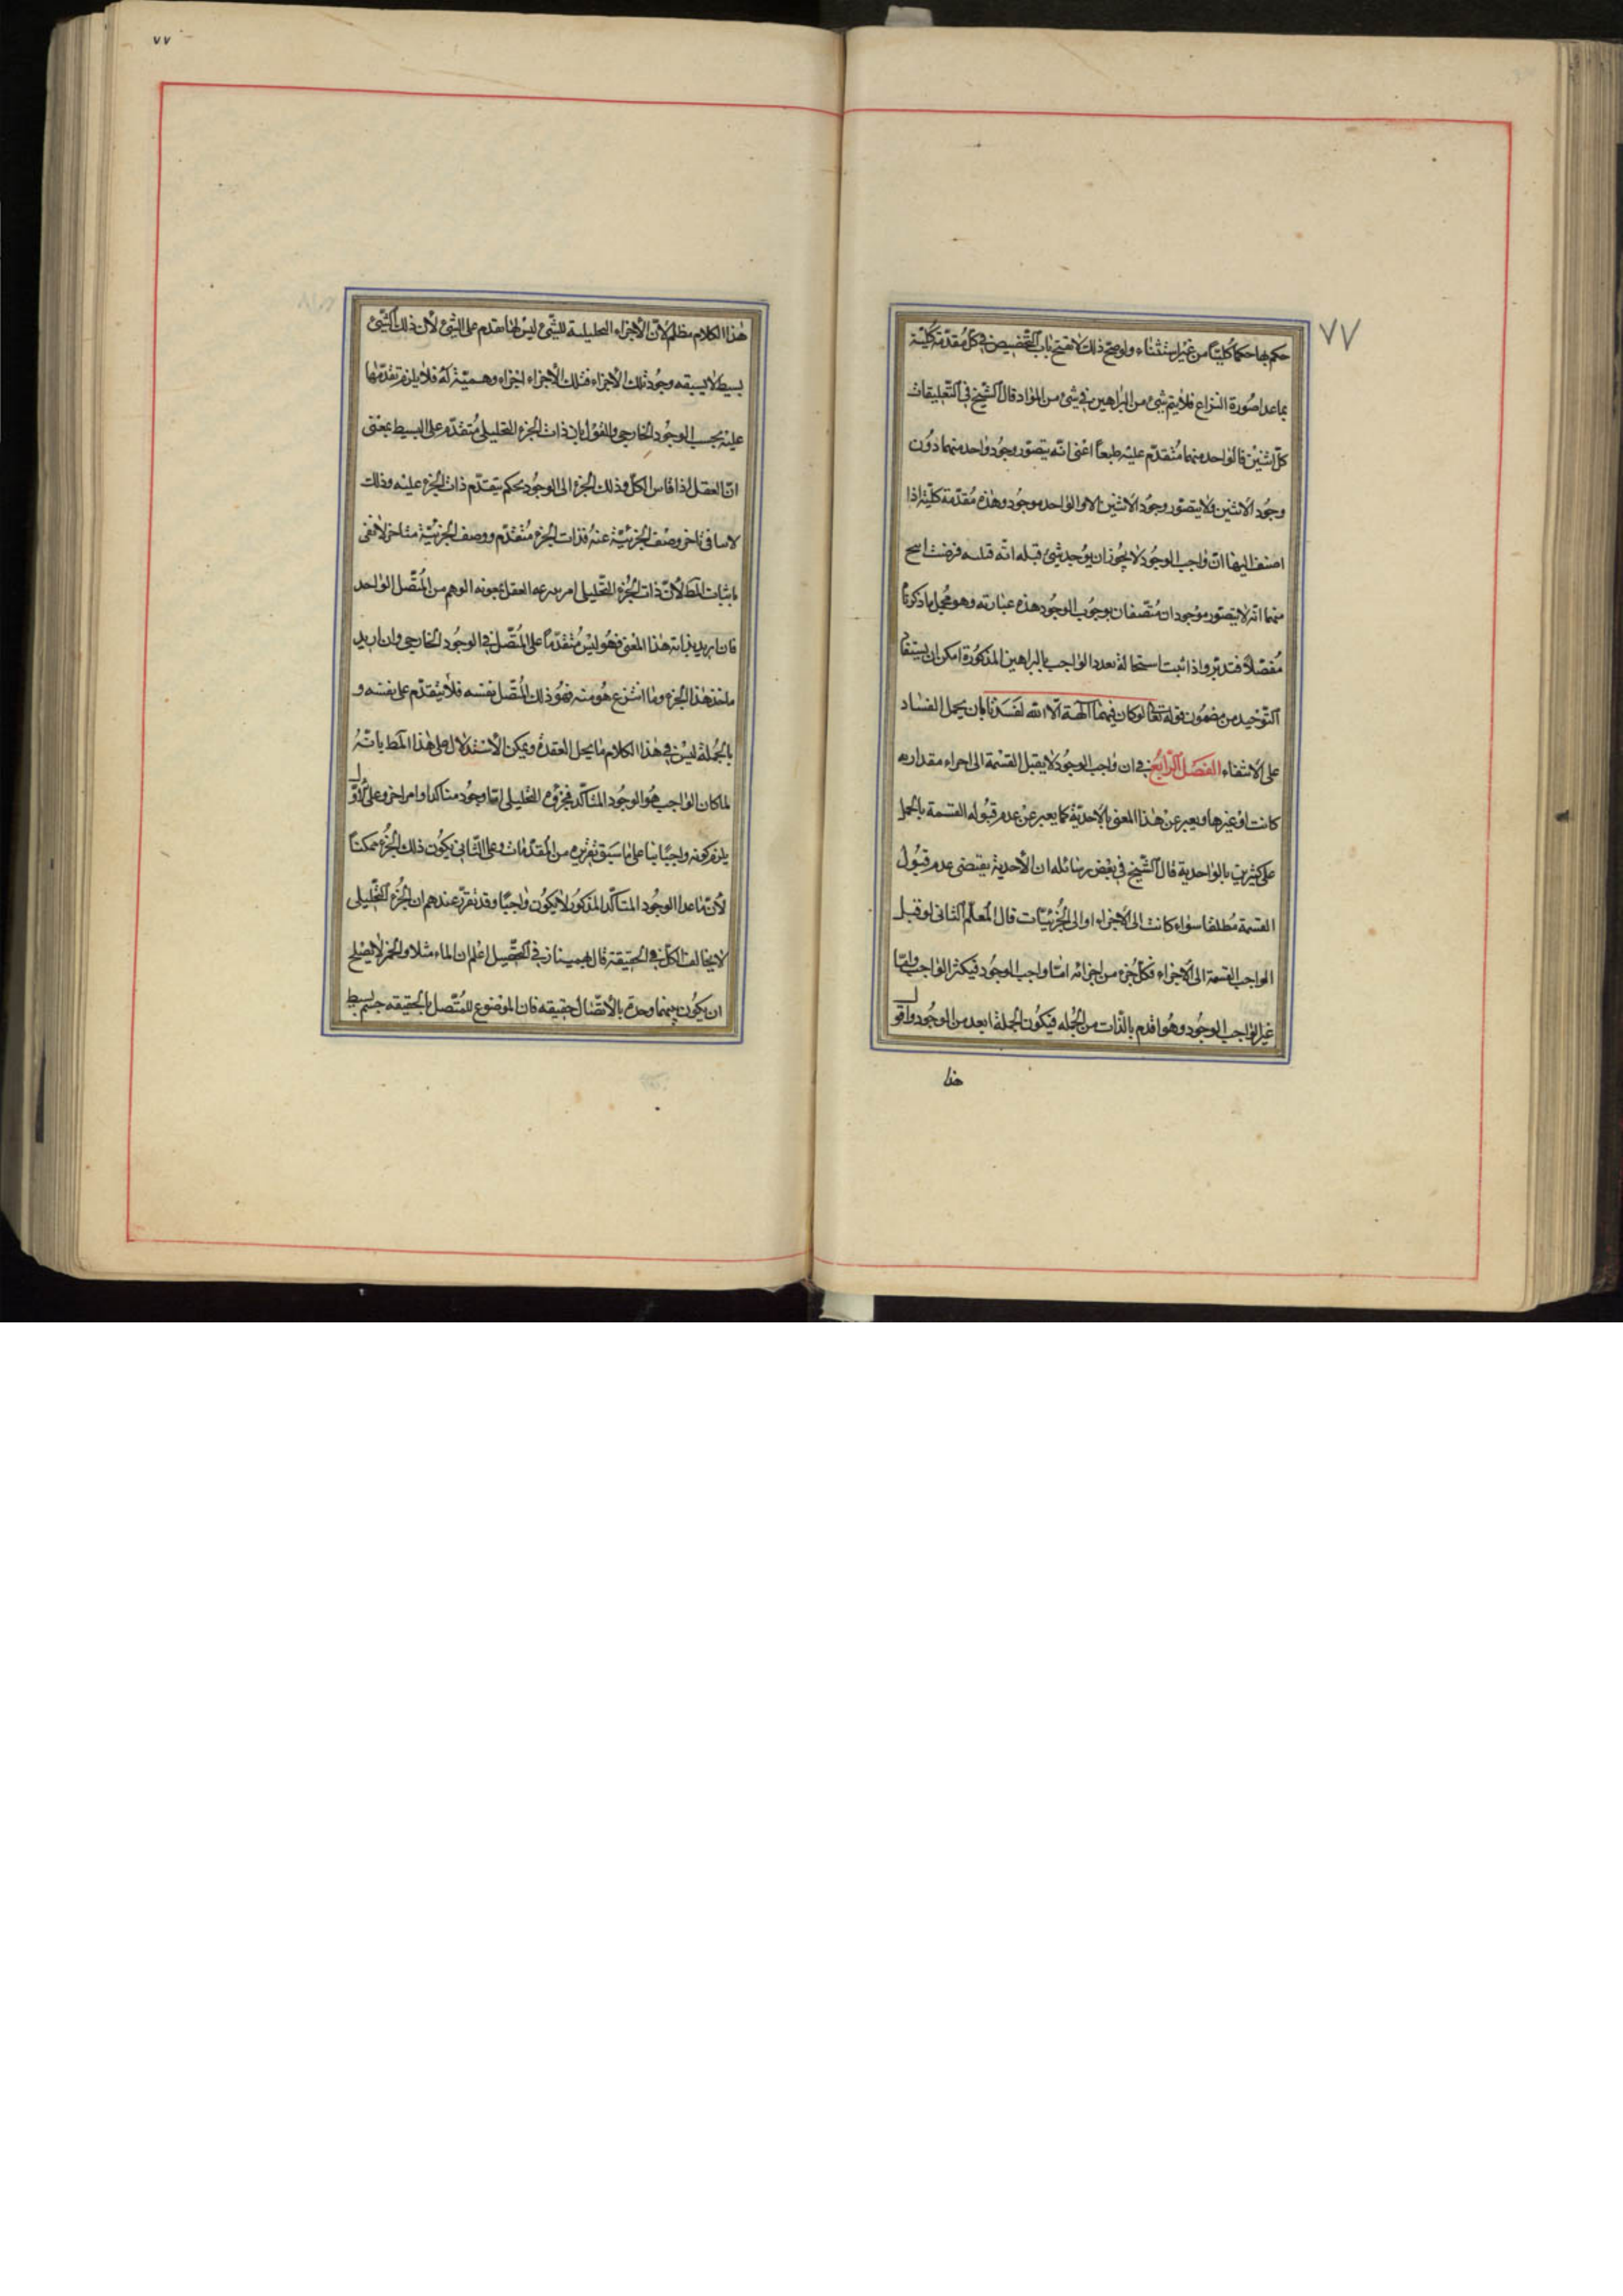 ٧٧
حكم بها حكما كليّا من غير استثناء ولو صحّ ذلك لانفتح باب التّخصيص في كلّ مُقدّمة كليّة
بما عدا صُورة النزاع فلا يتم شئ من البراهين في شئ من الموٰاد قال الشّيخ في التّعليقات
كلّ اثنين فالوٰاحد منهما مُتقدّم عليْه طبعاً اعْنى انّه يتصوّر وجُود وٰاحد منهما دوُن
وجُود الاثنين ولا يتصوّر وجوُد الاثنين الا والوٰاحد موجُود وهٰذه مُقدّمة كليّة اذا
اضف اليهٰا انّ وٰاجب الوجُود لا يجُوز ان يوُجد شئ قبله انّه قبلـه فرضت انتج
منهما انّه لا يتصوّر موْجودان مُتّصفان بوجوُب الوجُود هذه عبٰارته وهو مجُمل ما ذكرناهُ
مُفصّلاً فتدبّر واذا ثبت استحالة تعدد الوٰاجب بالبراهين المذكوُرة امكن ان يستفا
التّوْحيد من مضموُن قوله تعٰالى لو كان فيهمٰا آلهـة الّا الله لفَسَدَتٰا بان يحمل الفسٰاد
على الانتفاء الفصَل الرّابعُ في ان وٰاجب الوجوُد لا يقبل القسْمة الى اجزاء مقداريه
كانت اوْ غيرها ويعبر عنْ هٰذا المعنى بالأحديّة كما يعبر عنْ عدم قبُوله القسمة بالحمل
على كثيرين بالوٰاحدية قال الشّيخ في بعْض رسٰائله ان الأحدية يقتضى عدم قبُول
القسمة مُطلقا سوٰاء كانت الى الأجزاء او الى الجُزئيّات قال المُعلّم الثّانى لو قبـل
الوٰاجب القسمة الى الأجزاء فكلّ جُزء من اجزائه امّا وٰاجب الوجوُد فيكثر الوٰاجب وامّا
غير الوٰاجب الوجُود وهُو اقدم بالذّات من الجُمله فيكوُن الجملة ابعد من الوجُود واقول
هذا
٧٧
هٰذا الكلام منظلم لأنّ الأجزاء التحليليـة للشّئ ليْس لها تقدم على الشئ لأن ذلك الشّئ
بسيط لا يسبقه وجُود تلك الأجزاء فتلك الأجزاء اجزاء وهـميّة لهُ فلا يلزم تقدّمها
عليْه بحسب الوجوُد الخارجى والقوْل بان ذات الجُزء التحليلى مُتقدّم على البسيط بمعْنى
انّ العقل اذا قاس الكلّ وذلك الجُزء الى الوجوُد يحكم بتقدّم ذات الجُزء عليْه وذلك
لا ينافى تاخر وصْف الجُزئيّة عنهُ فذات الجُزء مُتقدّم ووصف الجُزئيّة متاخر لا تفى
باثبات المط لأنّ ذات الجُزء التّحليلى امر ينزعه العقل بمعونه الوهم من المُتّصل الوٰاحد
فان اريد بذاته هٰذا المعْنى فهُو ليْس مُتقدّماً على المُتّصل في الوجوُد الخارجى وان اريد
ماخذ هٰذا الجُزء ومٰا انتزع هُو منه فهُو ذلك المُتّصل بنفسه فلا يتقدّم على نفسه و
بالجُملة ليْس في هٰذا الكلام مٰا يحلّ العقدة ويمكن الأستدلال على هٰذا المط بانّـهُ
لما كان الوٰاجب هُو الوجُود المتأكّد فجزؤه التّحليلى امّا وجُود متاكد او امر اخر وعلى الأوّل
يلزم كونه وٰاجبًا بناء على مٰا سبق تقريره من المُقدّمٰات وعلى الثّانى يكوُن ذلك الجُزء ممكناً
لأنّ مٰا عدا الوجُود المتأكّد المذكوُر لا يكوُن وٰاجبًا وقد تقرّر عندهم ان الجُزء التّحليلى
لا يخالف الكلّ في الحقيقة قال بهمنيار في التّحصيل اعْلم ان المٰاء مثلا والخمر لا يصْلح
ان يكوُن بينهما وحدة بالأتّصٰال حقيقه فان الموْضوُع للمُتّصل بالحقيقه جسْم بسيط